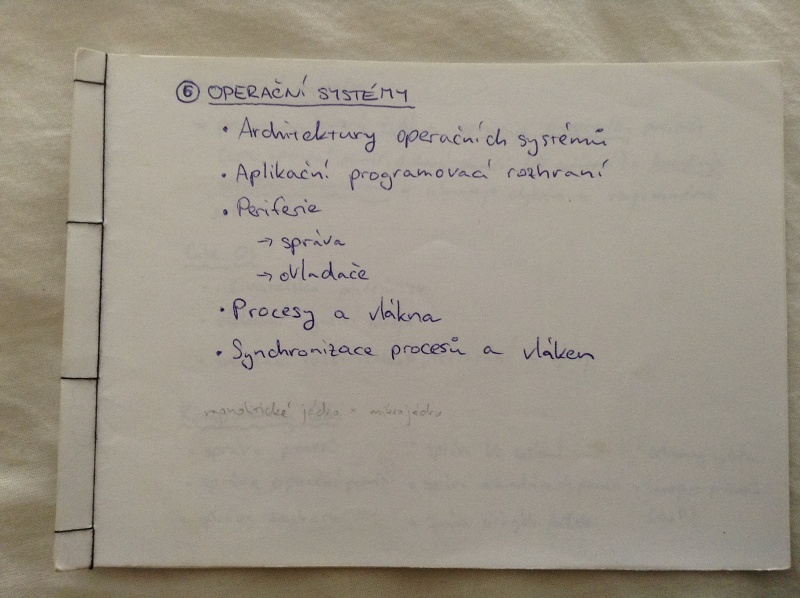 ⑥ OPERAČNÍ SYSTÉMY
• Architektury operačních systémů
• Aplikační programovací rozhraní
• Periferie
→ správa
→ ovladače
• Procesy a vlákna
• Synchronizace procesů a vláken
monolitické jádro × mikrojádro